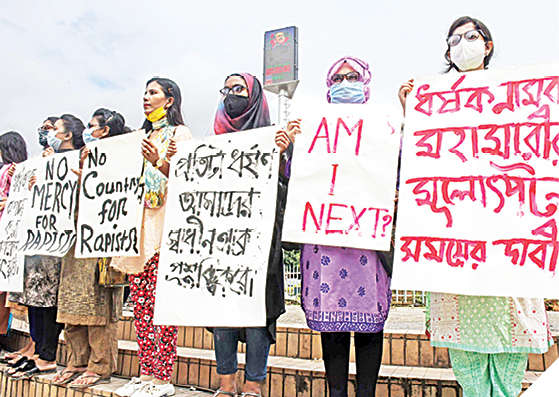 NO
MERCY
FOR
RAPIST
No
Country
for
Rapists
প্রতিটা ধর্ষণ
আমাদের
স্বাধীনতাকে
প্রশ্নবিদ্ধ করে
AM
I
NEXT?
ধর্ষক নামক
মহামারীর
মূলোৎপাটন
সময়ের দাবী